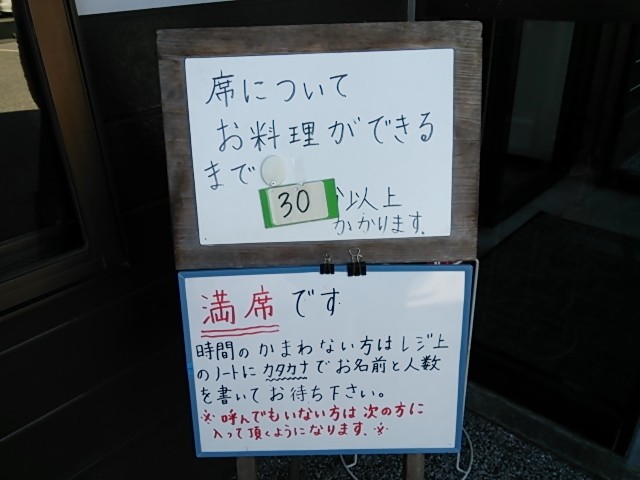 席について
お料理ができる
まで
30 分以上
かかります。
満席です
時間のかまわない方はレジ上
のノートにカタカナでお名前と人数
を書いてお待ち下さい。
※呼んでもいない方は次の方に
入って頂くようになります。※